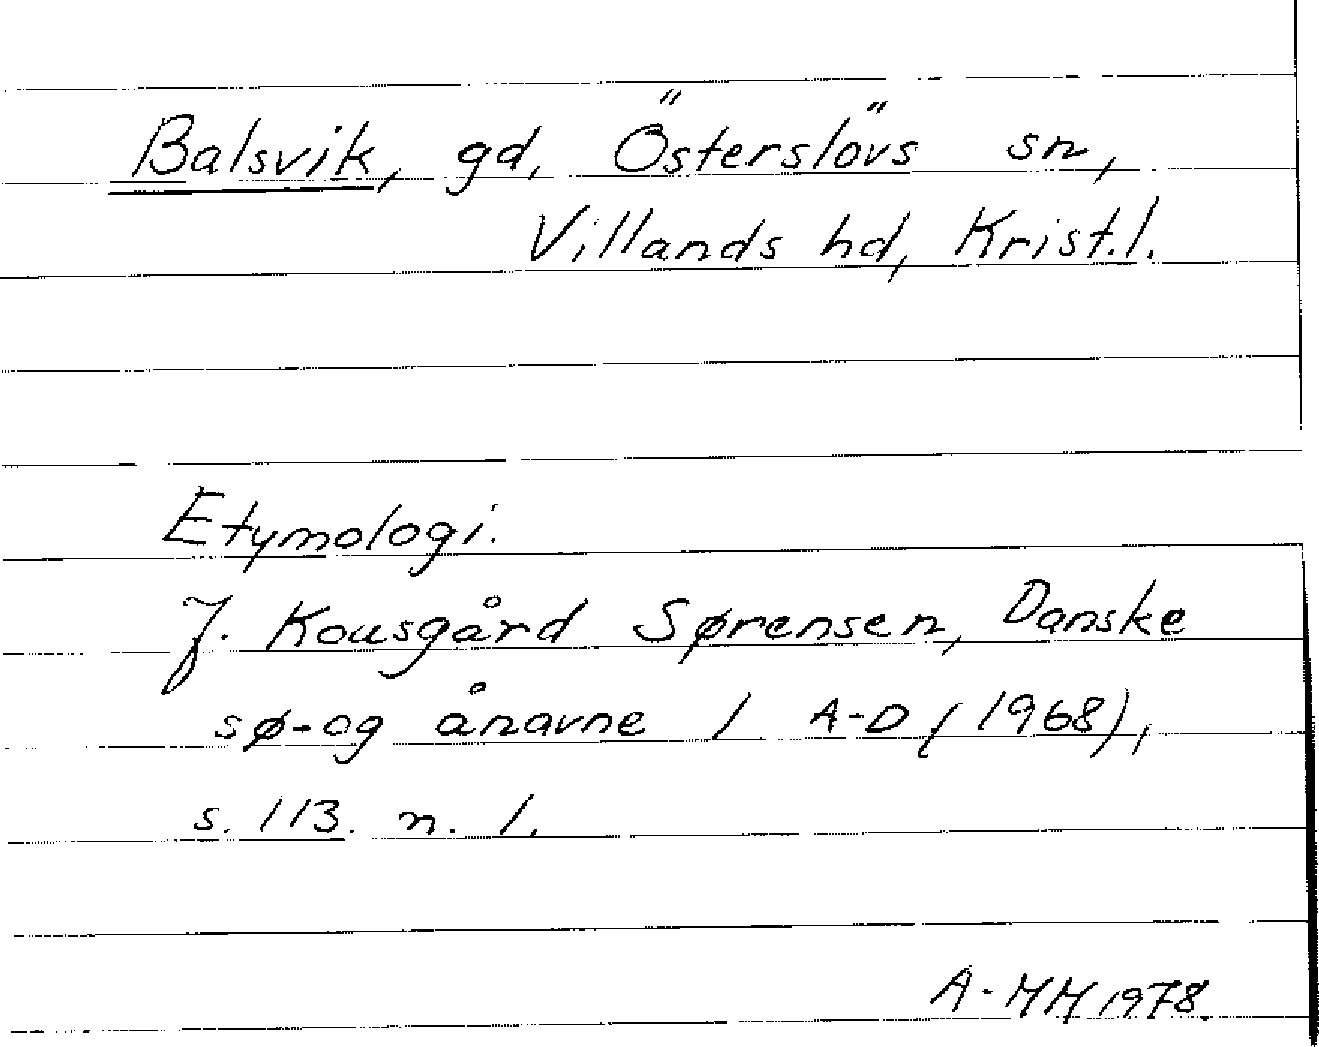 Balsvik, gd, Österslövs sn,
Villands hd, Krist.l.
Etymologi.
J. Kousgård Sørensen, Danske
sø- og ånavne 1 A-D (1968),
s. 113. n. 1.
A-MM 1978.